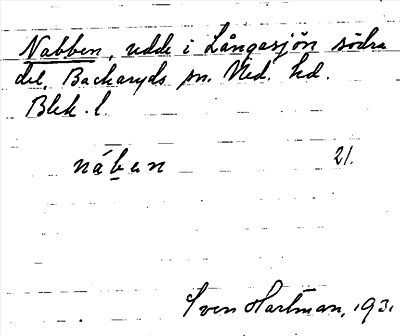 Nabben, udde i Långasjön södra
del, Backaryds sn. Med. hd.
Blek. l.
nában 21.
Sven Hartman, 1931